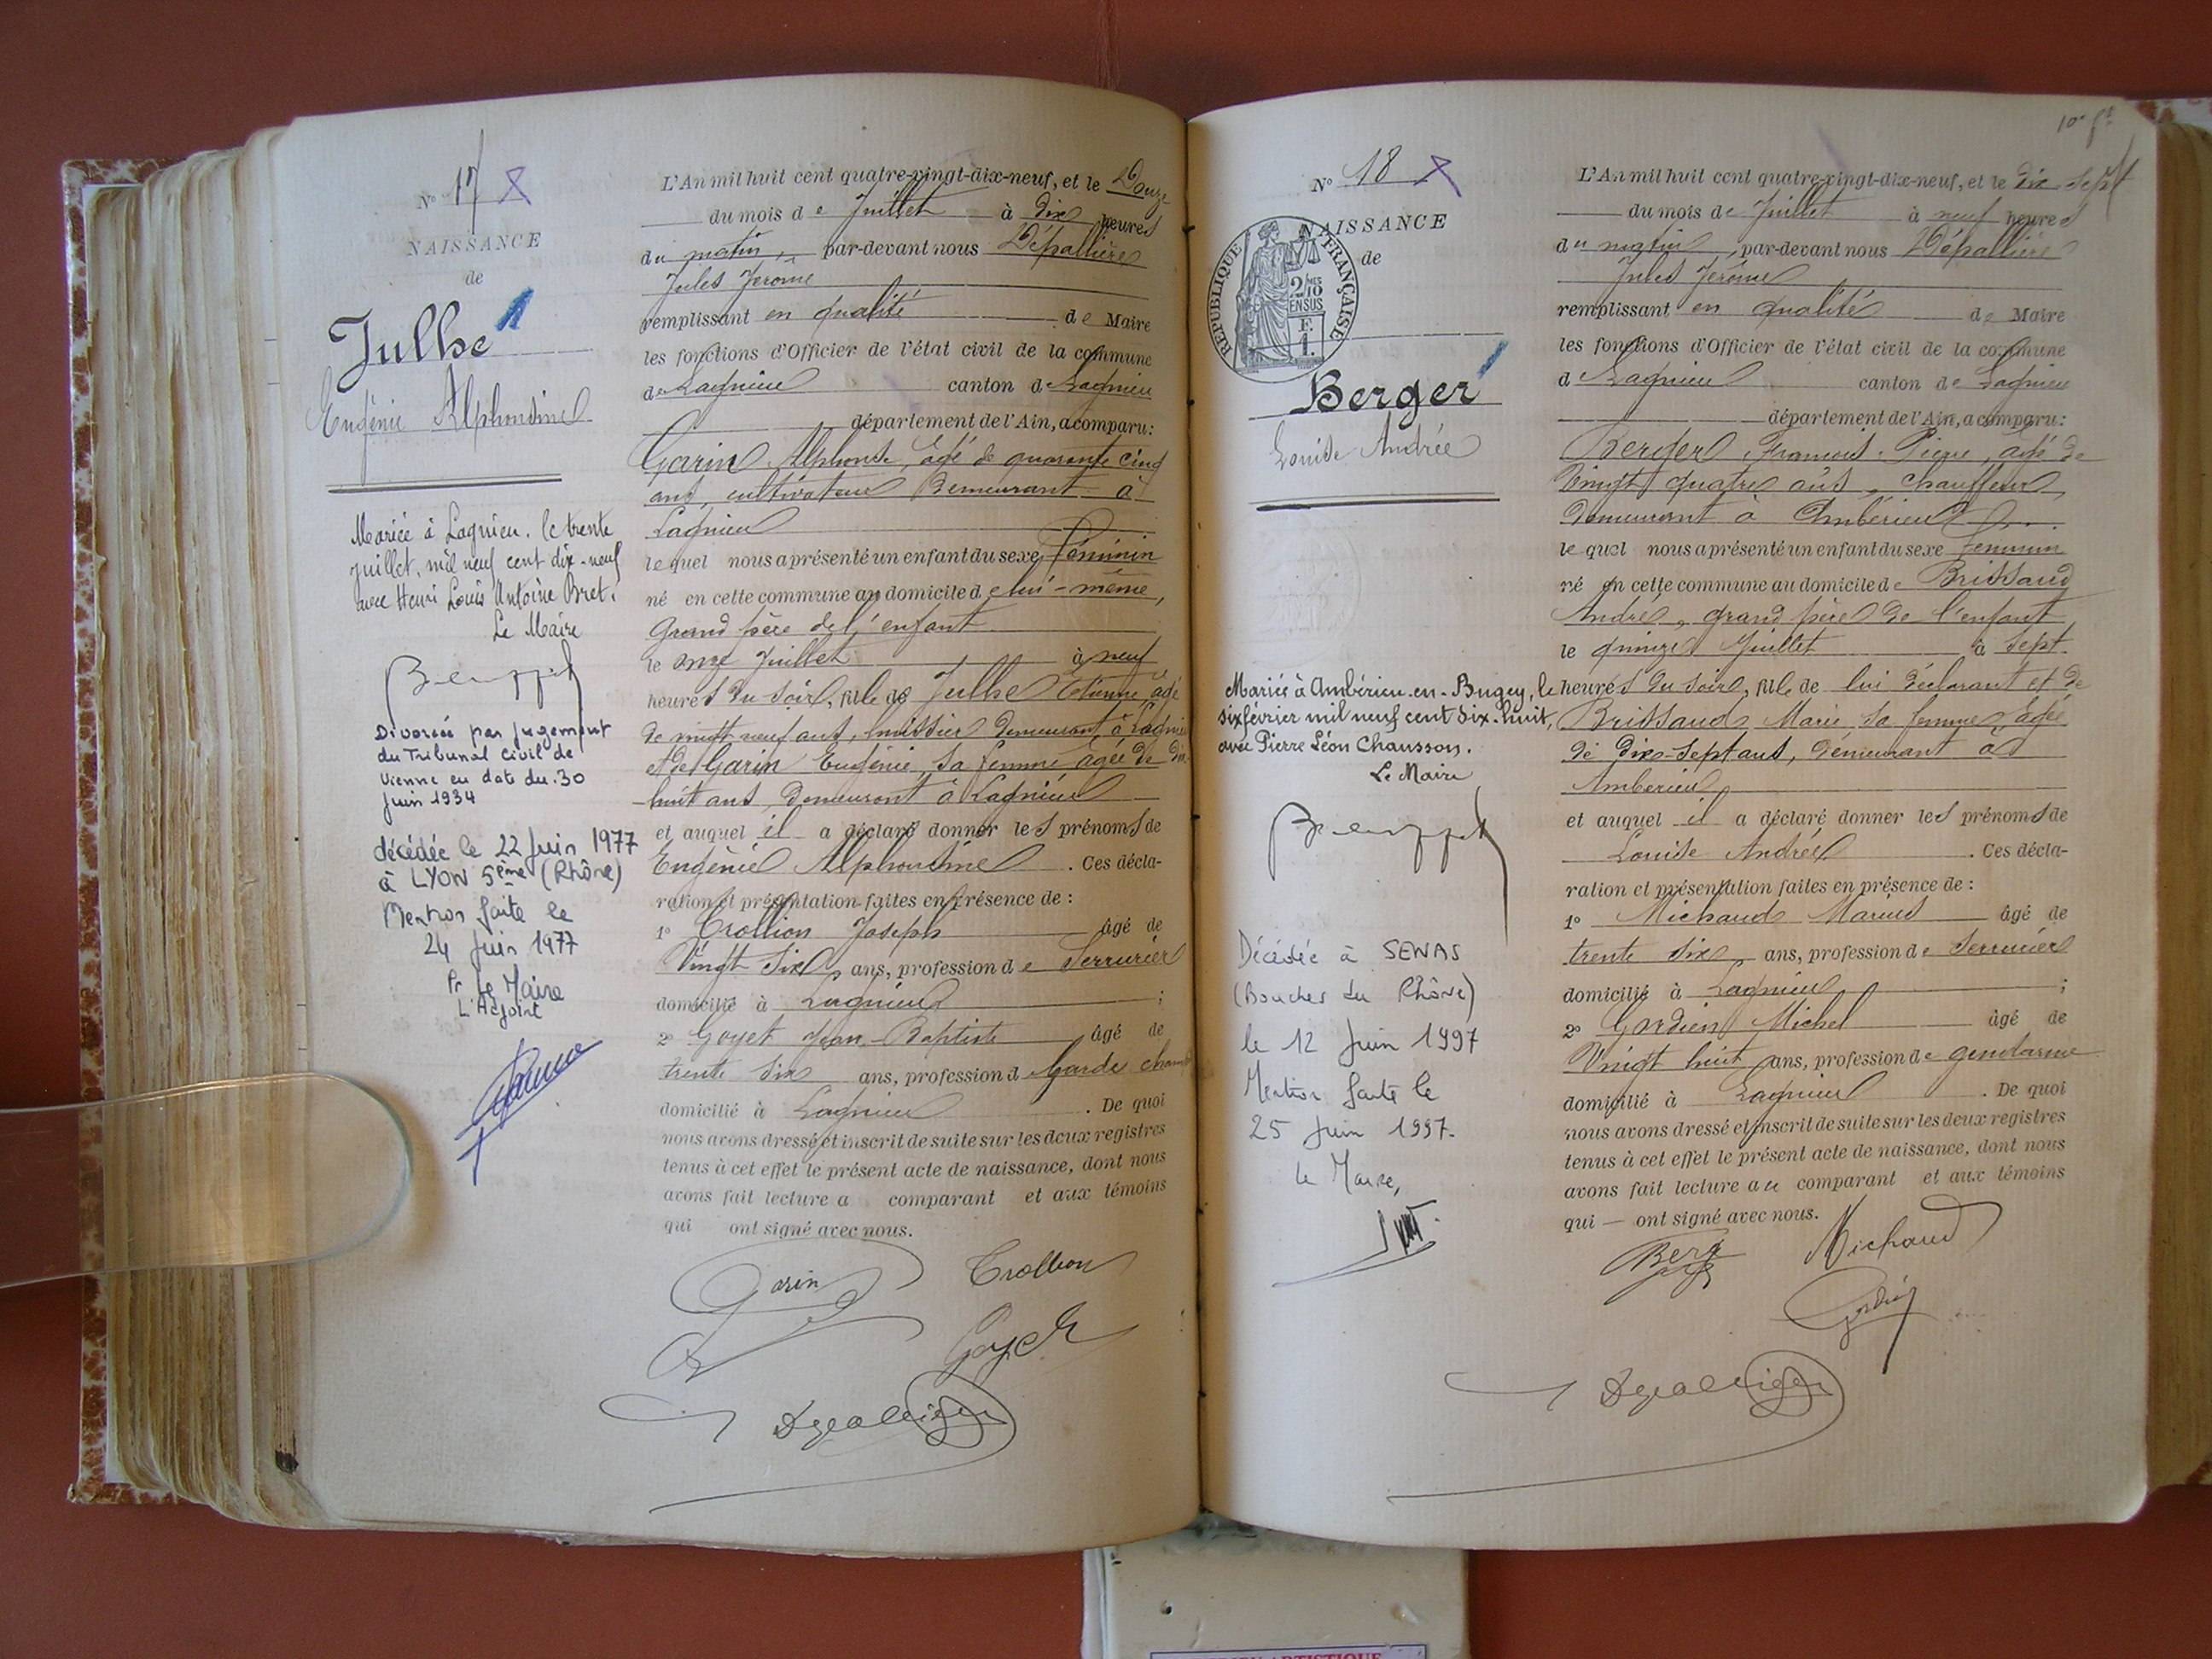 N° 17
NAISSANCE
de
Julhe
Eugénie Alphonsine
Mariée à Lagnieu, le trente
juillet, mil neuf cent dix-neuf
avec Henri Louis Antoine Bret.
Le Maire
Divorcée par jugement
du Tribunal civil de
Vienne en date du 30
Juin 1934
décédée le 22 Juin 1977
à LYON 5ème (Rhône)
Mention faite le
24 Juin 1977
Pr Le Maire
L'Adjoint
L'An mil huit cent quatre-vingt-dix-neuf, et le Douze
du mois de Juillet à dix heures
du matin, par-devant nous Dépallière
Jules Jérôme
remplissant en qualité de Maire
les fonctions d'Officier de l'état civil de la commune
de Lagnieu canton de Lagnieu
département de l'Ain, a comparu:
Garin Alphonse, âgé de quarante cinq
ans, cultivateur Demeurant à
Lagnieu
lequel nous a présenté un enfant du sexe féminin
né en cette commune au domicile de lui-même,
Grand père de l'enfant
le onze Juillet à neuf
heures du soir, fille de Julhe Etienne, âgé
de vingt neuf ans, huissier demeurant à Lagnieu
et de Garin Eugénie, sa femme âgée de dix-
huit ans, demeurant à Lagnieu
et auquel il a déclaré donner les prénoms de
Eugénie Alphonsine. Ces décla-
ration et présentation faites en présence de :
1° Crollion Joseph âgé de
Vingt Six ans, profession de Serrurier
domicilié à Lagnieu ;
2° Goyet Jean-Baptiste âgé de
trente six ans, profession d Garde
domicilié à Lagnieu. De quoi
nous avons dressé et inscrit de suite sur les deux registres
tenus à cet effet le présent acte de naissance, dont nous
avons fait lecture a comparant et aux témoins
qui ont signé avec nous.
Garin Crollion
Goyet
N° 18
NAISSANCE
de
REPUBLIQUE FRANÇAISE
2/10mes
EN SUS
F.
1.
Berger
Louise Andrée
Mariée à Ambérieu-en-Bugey, le
six février mil neuf cent dix-huit,
avec Pierre Léon Chausson.
Le Maire
Décédée à SENAS
(Bouches du Rhône)
le 12 Juin 1997
Mention faite le
25 Juin 1997.
Le Maire,
L'An mil huit cent quatre-vingt-dix-neuf, et le dix Sept
du mois de Juillet à neuf heures
du matin, par-devant nous Dépallière
Jules Jérôme
remplissant en qualité de Maire
les fonctions d'Officier de l'état civil de la commune
d Lagnieu canton de Lagnieu
département de l'Ain, a comparu:
Berger François Pierre, âgé de
Vingt quatre ans, chauffeur,
demeurant à Ambérieu
lequel nous a présenté un enfant du sexe féminin
né en cette commune au domicile de Brissaud
André, grand père de l'enfant
le quinze Juillet à Sept
heures du soir, fille de lui déclarant et de
Brissaud Marie, sa femme âgée
de dix-sept ans, demeurant à
Ambérieu
et auquel il a déclaré donner les prénoms de
Louise Andrée. Ces décla-
ration et présentation faites en présence de :
1° Michaud Marius âgé de
trente six ans, profession de Serrurier
domicilié à Lagnieu ;
2° Gordien Michel âgé de
Vingt huit ans, profession de gendarme
domicilié à Lagnieu. De quoi
nous avons dressé et inscrit de suite sur les deux registres
tenus à cet effet le présent acte de naissance, dont nous
avons fait lecture au comparant et aux témoins
qui — ont signé avec nous.
Michaud